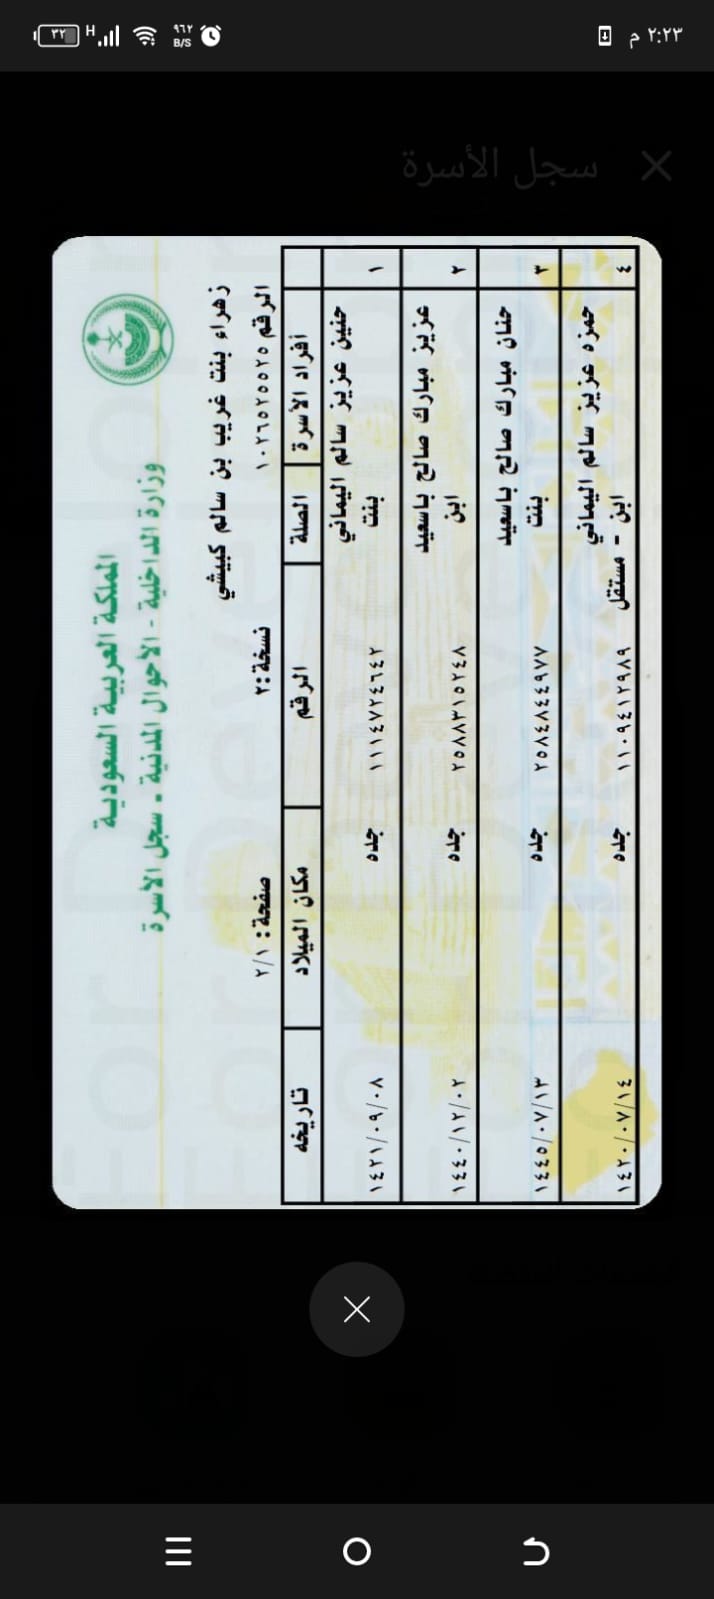 ٢:٢٣ م
٩٦٢ B/S
H
٣٢
سجل الأسرة
المملكة العربية السعودية
وزارة الداخلية - الأحوال المدنية - سجل الأسرة
زهراء بنت غريب بن سالم كبيشي
الرقم ١٠٢٦٥٢٥٥٢٥ نسخة: ٢ صفحة: ٢/١
أفراد الأسرة الصلة الرقم مكان الميلاد تاريخه
١ حنين عزيز سالم اليماني بنت ١١١٤٧٢٤٦٤٢ جده ١٤٢١/٠٩/٠٨
٢ عزيز مبارك صالح باسعيد ابن ٢٥٨٨٣١٥٢٤٨ جده ١٤٤٠/١٢/٠٢
٣ حنان مبارك صالح باسعيد بنت ٢٥٨٤٨٤٤٩٧٧ جده ١٤٤٥/٠٧/١٣
٤ حمزه عزيز سالم اليماني ابن - مستقل ١١٠٩٤١٢٩٨٩ جده ١٤٢٠/٠٧/١٤